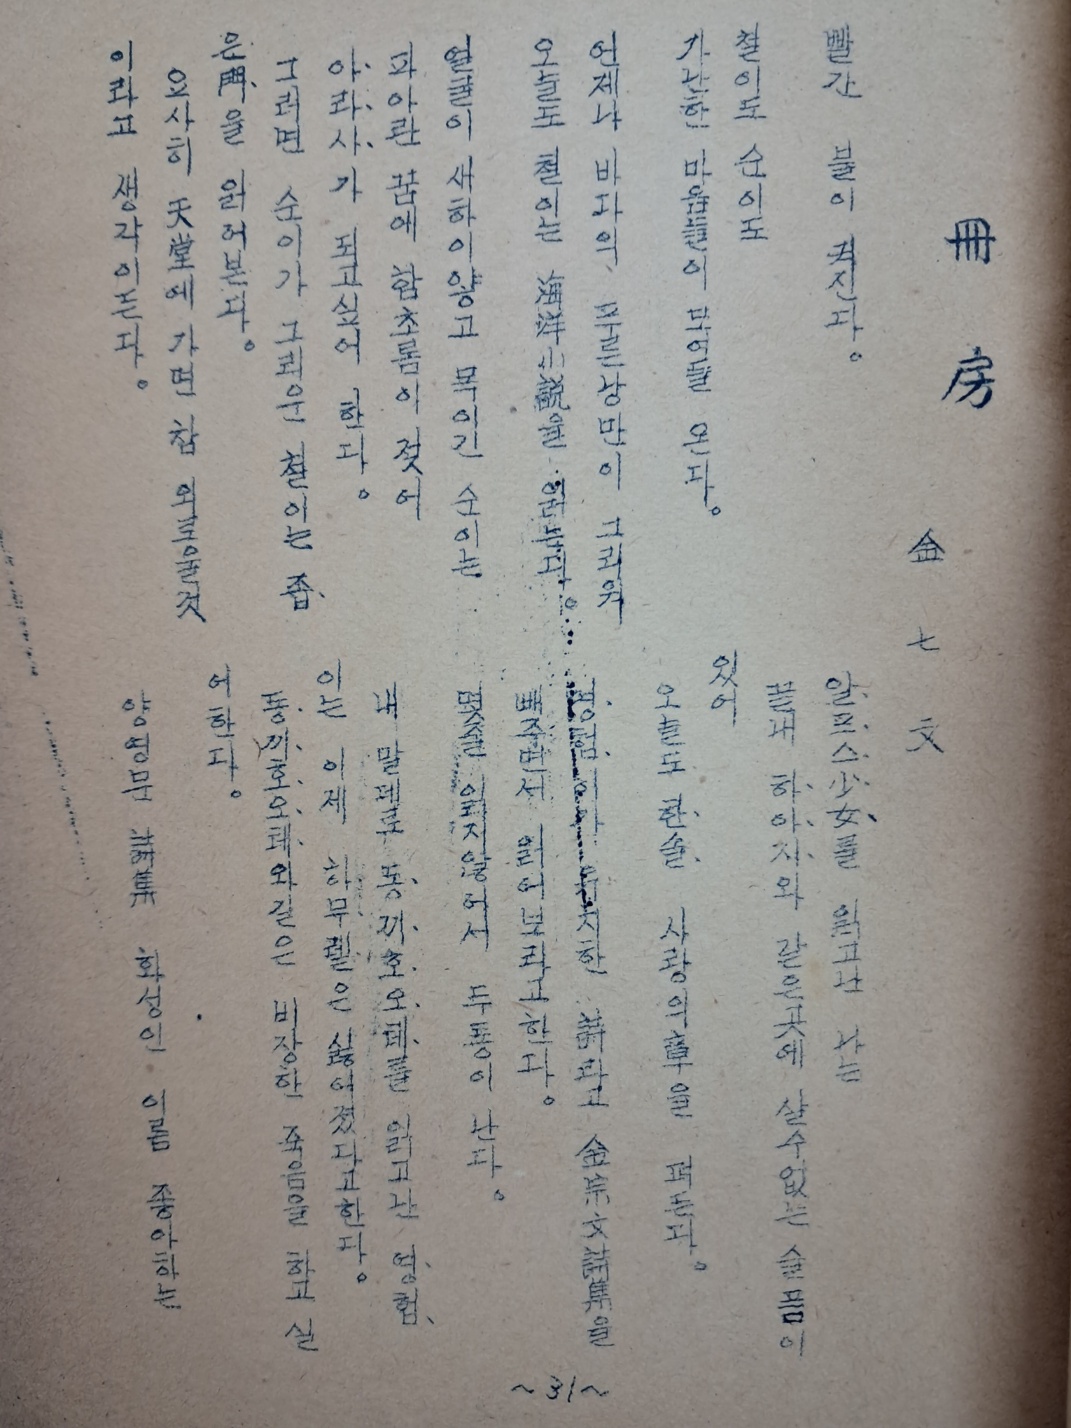 冊房
金七文
빨간 불이 켜진다。
철이도 순이도
가난한 마음들이 모여들 온다。
언제나 바다의 푸른낭만이 그리워
오늘도 철이는 海洋小說을 읽는다。
얼굴이 새하이얗고 목이긴 순이는
파아란 꿈에 함초롬이 젖어
아라사가 되고싶어 한다。
그러면 순이가 그리운 철이는 좁
은門을 읽어본다。
요사히 天堂에 가면 참 외로울것
이라고 생각이든다。
알프스少女를 읽고난 나는
끝내 하이지와 같은곳에 살수없는 슬픔이
있어
오늘도 한술 사랑의章을 펴든다。
영험이가 유치한 詩라고 金宗文詩集을
빼주면서 읽어보라고한다。
몇줄 읽지않어서 두통이 난다。
내 말데로 동끼호오테를 읽고난 영험
이는 이제 하무렡은 싫어졌다고한다。
동끼호오테와같은 비장한 죽음을 하고 싶
어한다。
양명문 詩集 화성인 이름 좋아하는
~31~